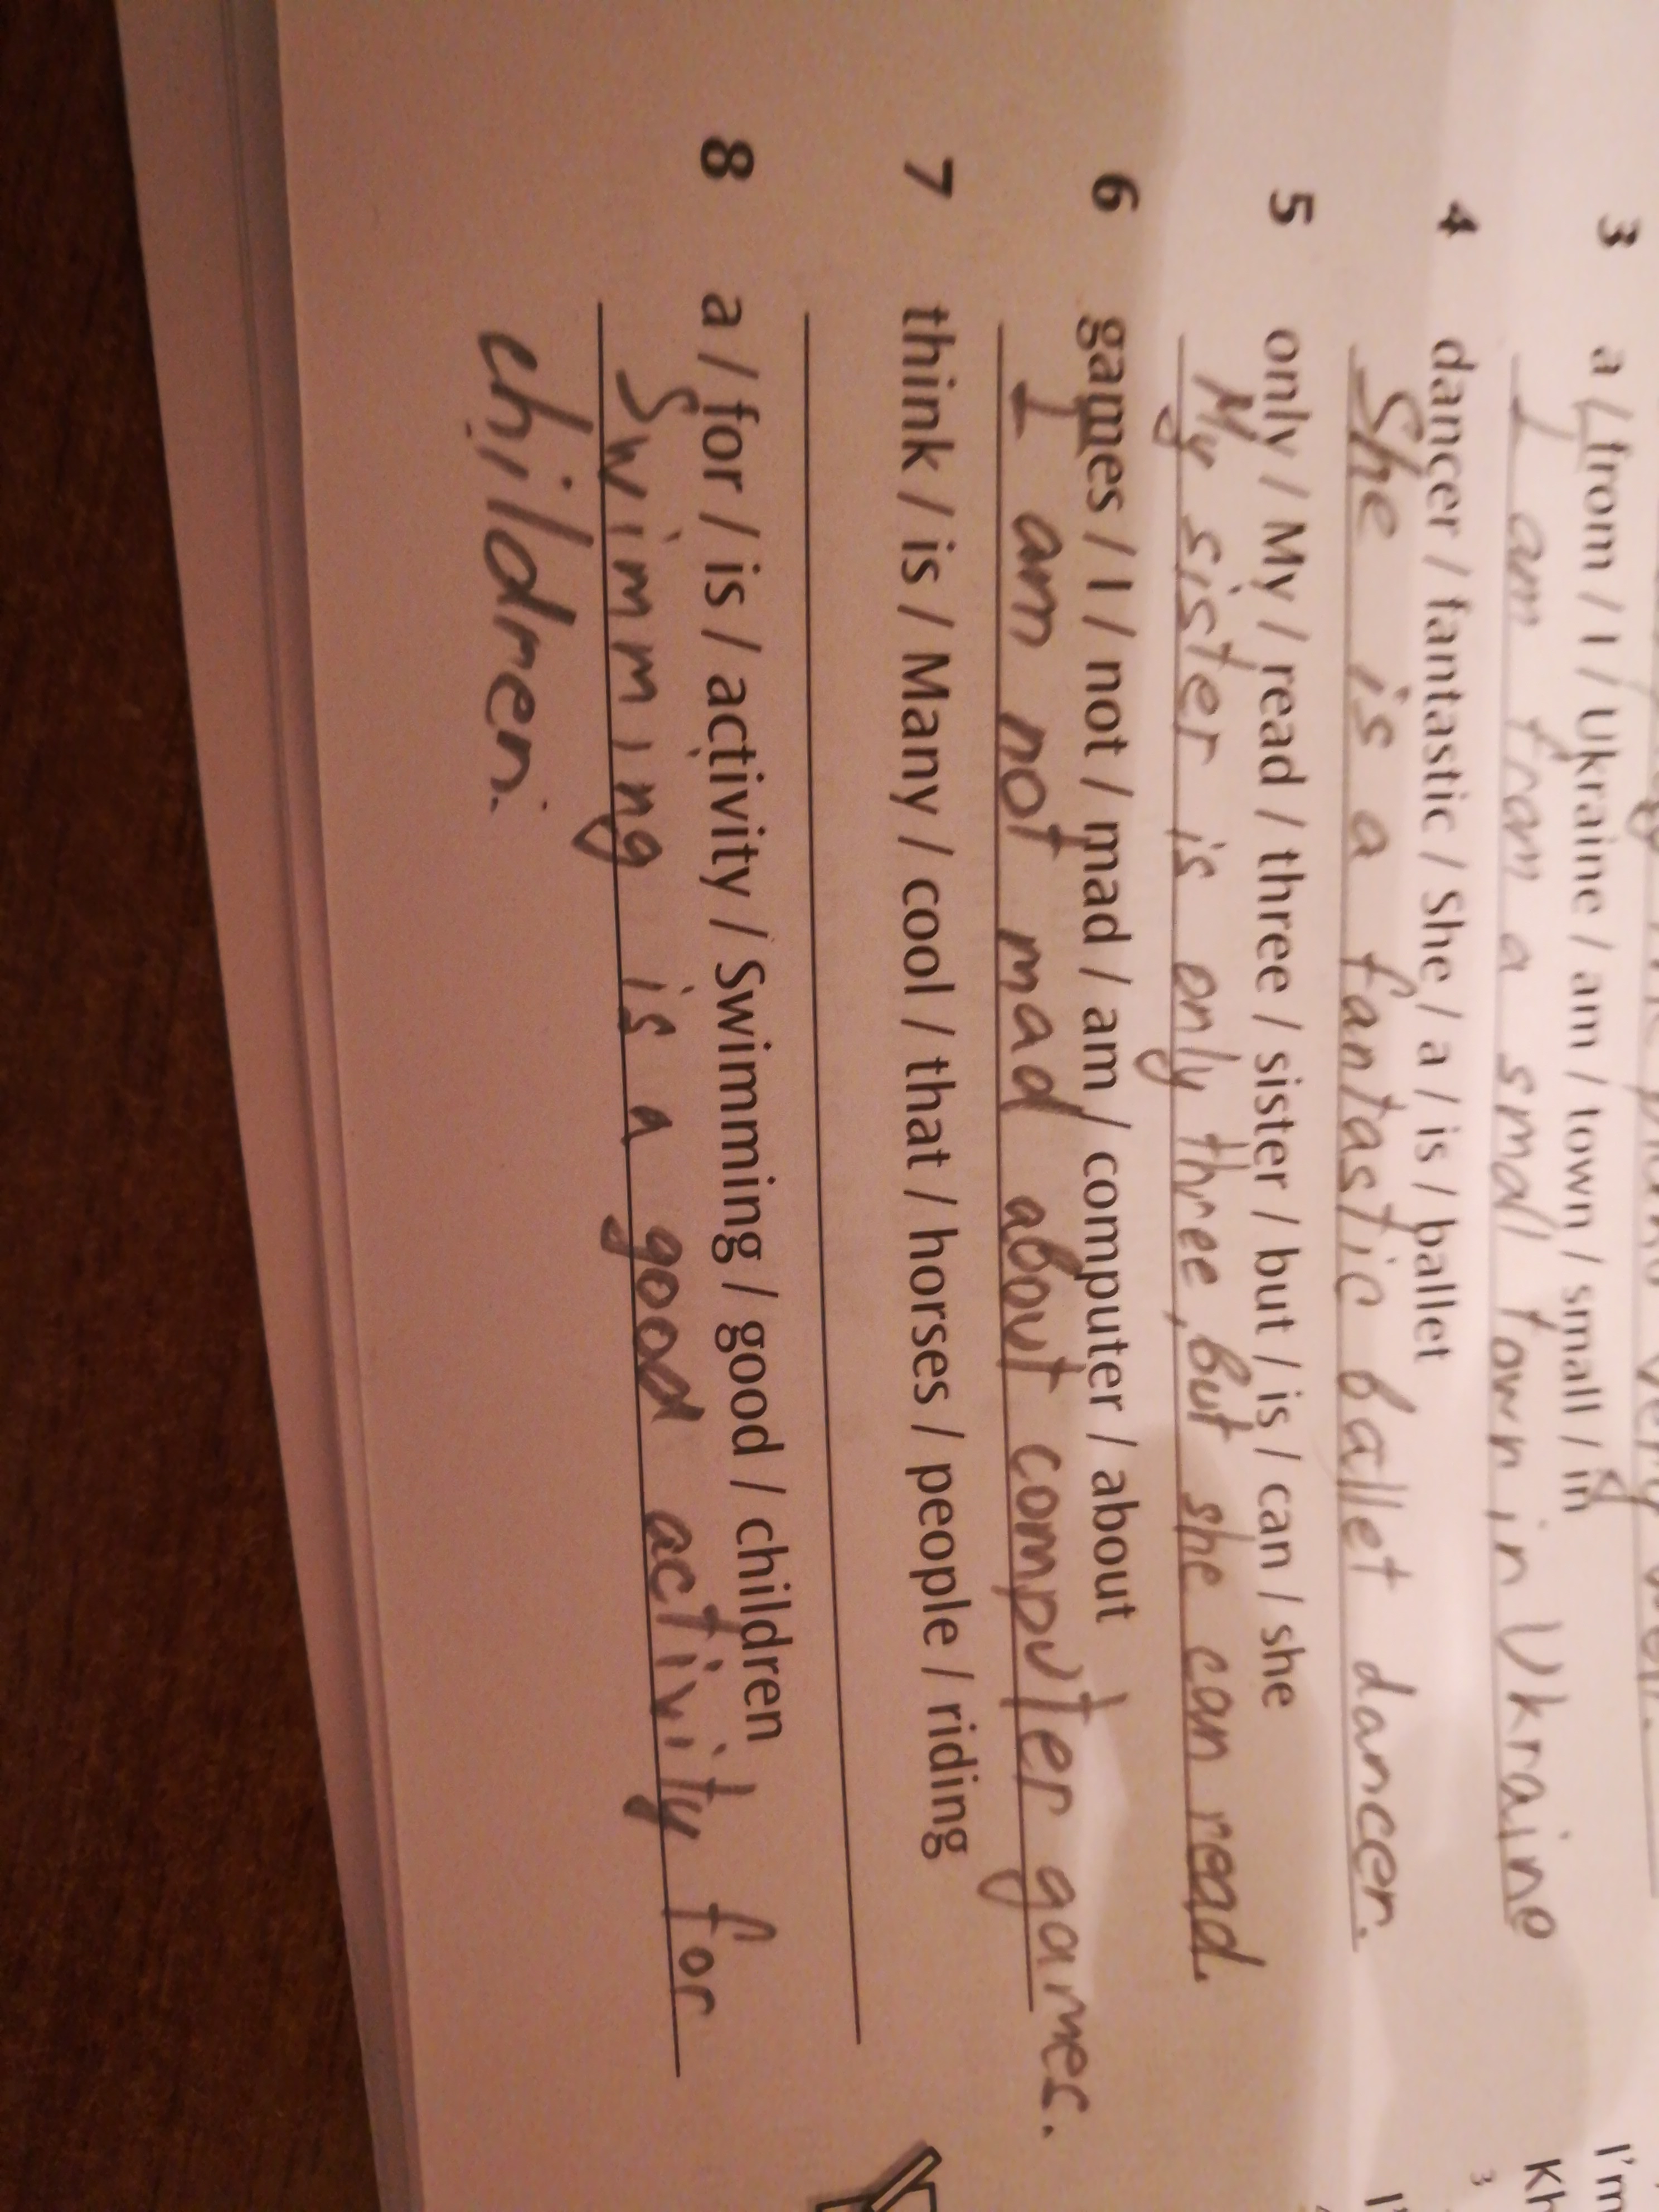 3 a / from / I / Ukraine / am / town / small / in
I am from a small town in Ukraine
4 dancer / fantastic / She / a / is / ballet
She is a fantastic ballet dancer.
5 only / My / read / three / sister / but / is / can / she
My sister is only three, but she can read.
6 games / I / not / mad / am / computer / about
I am not mad about computer games.
7 think / is / Many / cool / that / horses / people / riding
8 a / for / is / activity / Swimming / good / children
Swimming is a good activity for
children.
I'm
Kh
3
I'